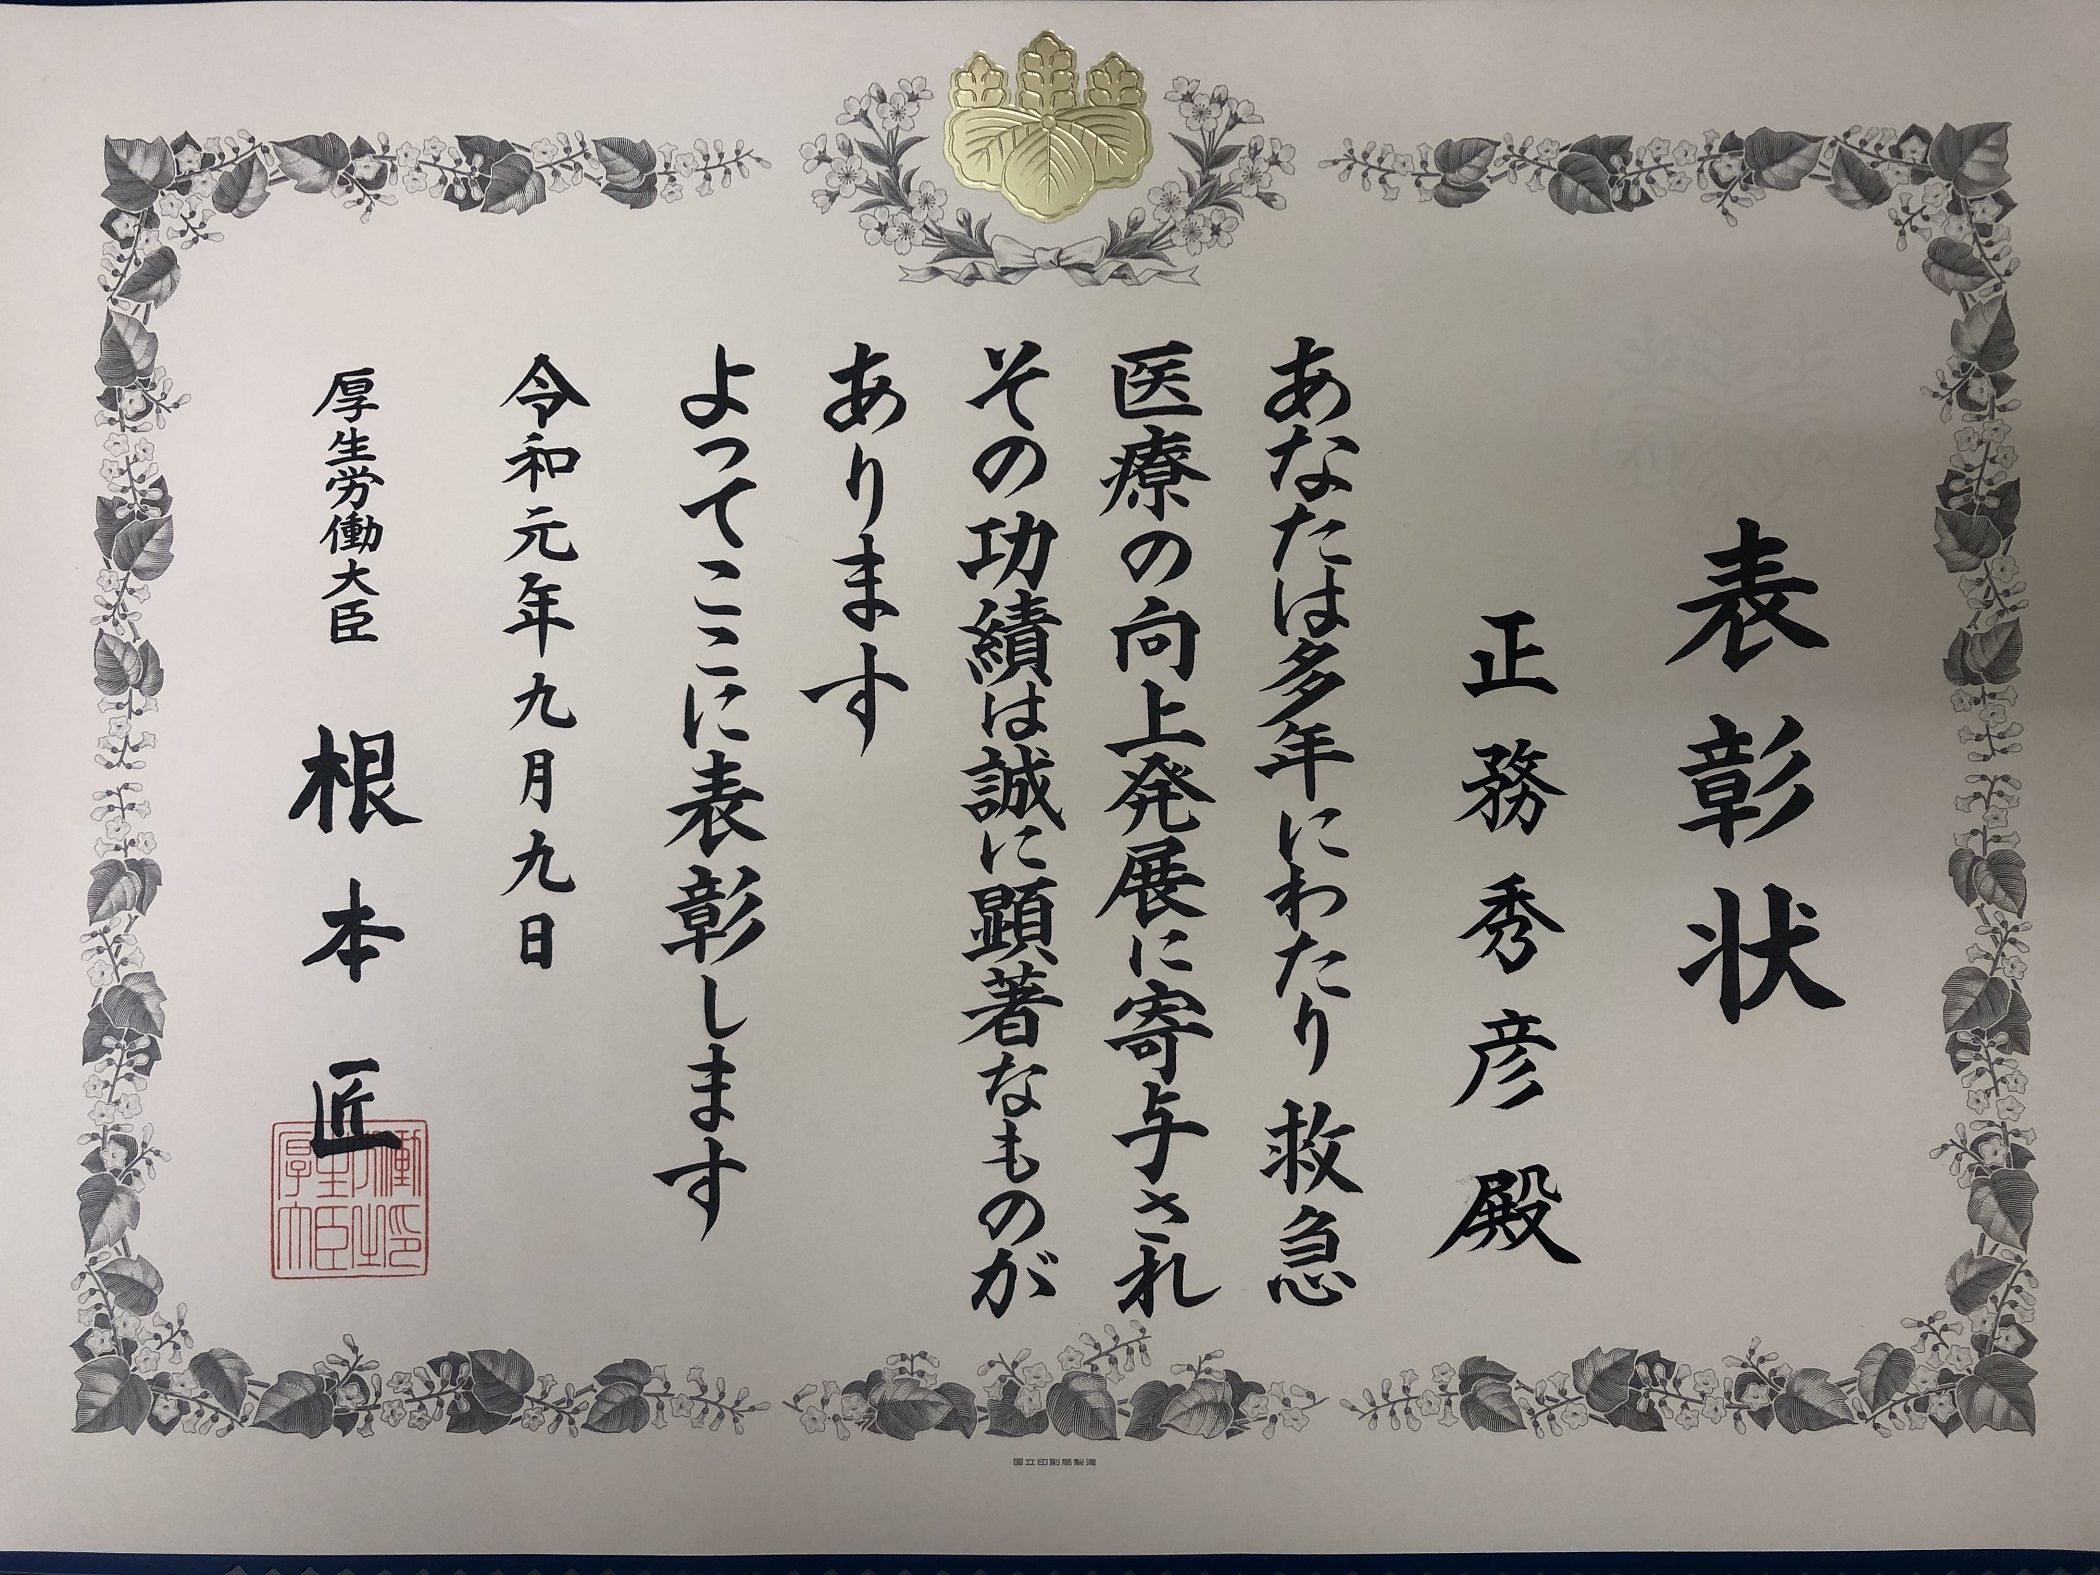 表彰状
正務秀彦殿
あなたは多年にわたり救急
医療の向上発展に寄与され
その功績は誠に顕著なものが
あります
よってここに表彰します
令和元年九月九日
厚生労働大臣 根本匠
国立印刷局製造